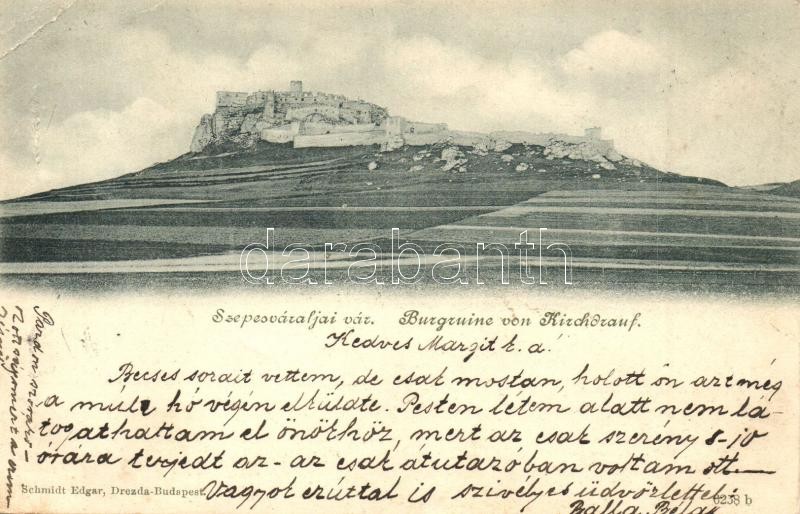 darabanth
Szepesváraljai vár. Burgruine von Kirchdrauf.
Kedves Margit k. a!
Becses sorait vettem, de csak mostan, holott ön azt még
a mult hó végén elküldte. Pesten létem alatt nem lá-
togathattam el önökhöz, mert az csak szerény 8-10
órára terjedt az-az csak átutazóban voltam ott —
Vagyok ezúttal is szívélyes üdvözlettel:
Balla Béla
Schmidt Edgar, Drezda-Budapest.
0238 b